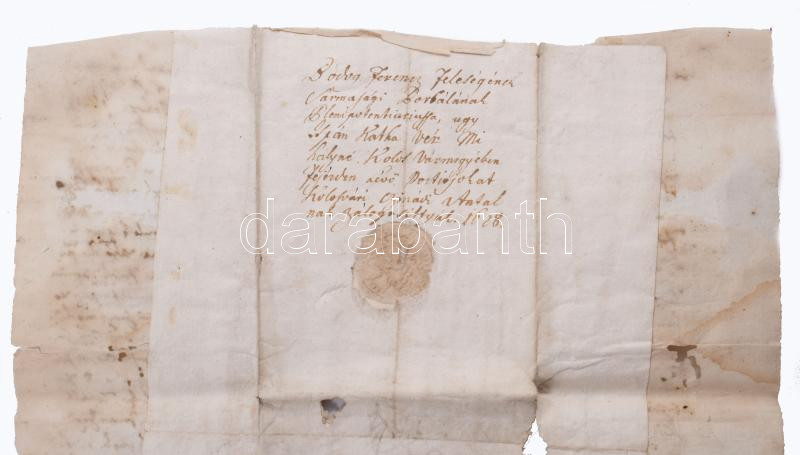 Bodva Ferencz feleségének
Sarmasági Borbálának
Plenipotentiariussa, ugy
Ispán Katha Vér Mi
halyné Kolos Vármegyében
Fejérden aévő Portiojokat
Kolosvári Antal
nak Zálogosittyak 1608.
darabanth